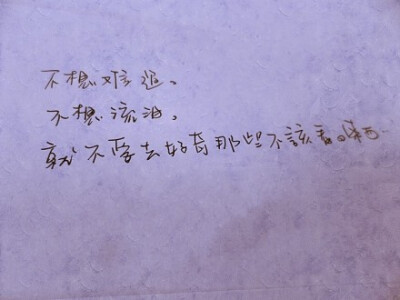 不想难過。
不想流泪。
就不要去好奇那些不該看的東西